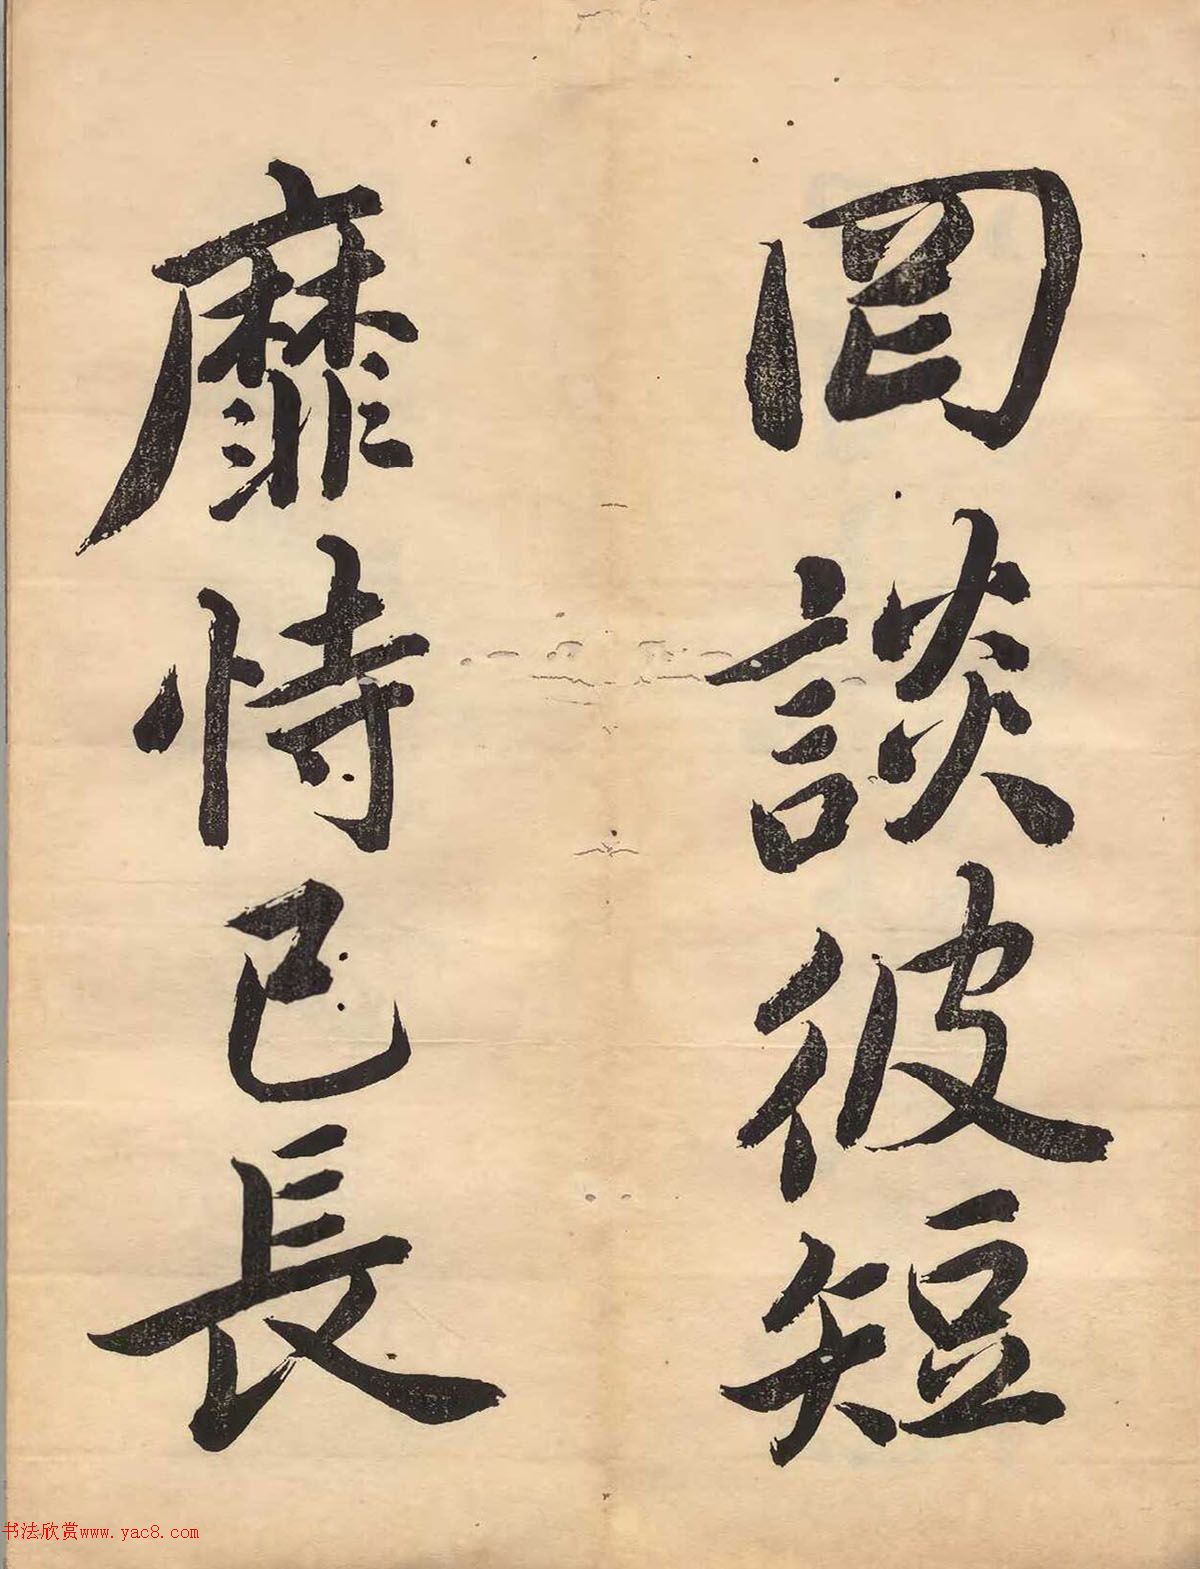 罔談彼短
靡恃己長
书法欣赏www.yac8.com